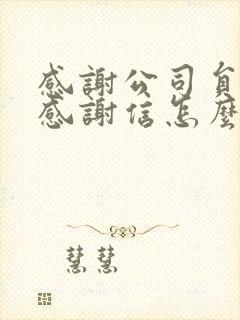 感謝公司負
感謝信怎麼
慧慧